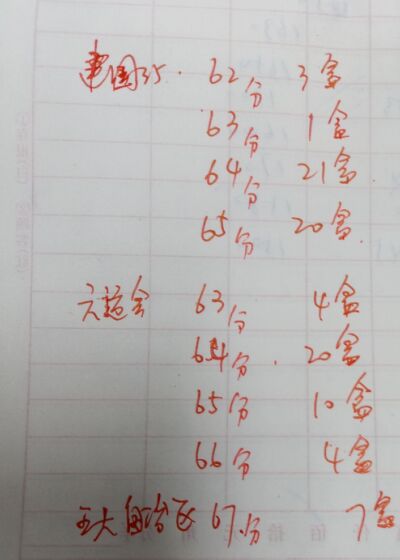 建国35. 62分 3盒
63分 1盒
64分 21盒.
65分 20盒.
六运会 63分 4盒
64分. 20盒
65分 10盒
66分 4盒
五大自治区 67分 7盒
佰 拾 元